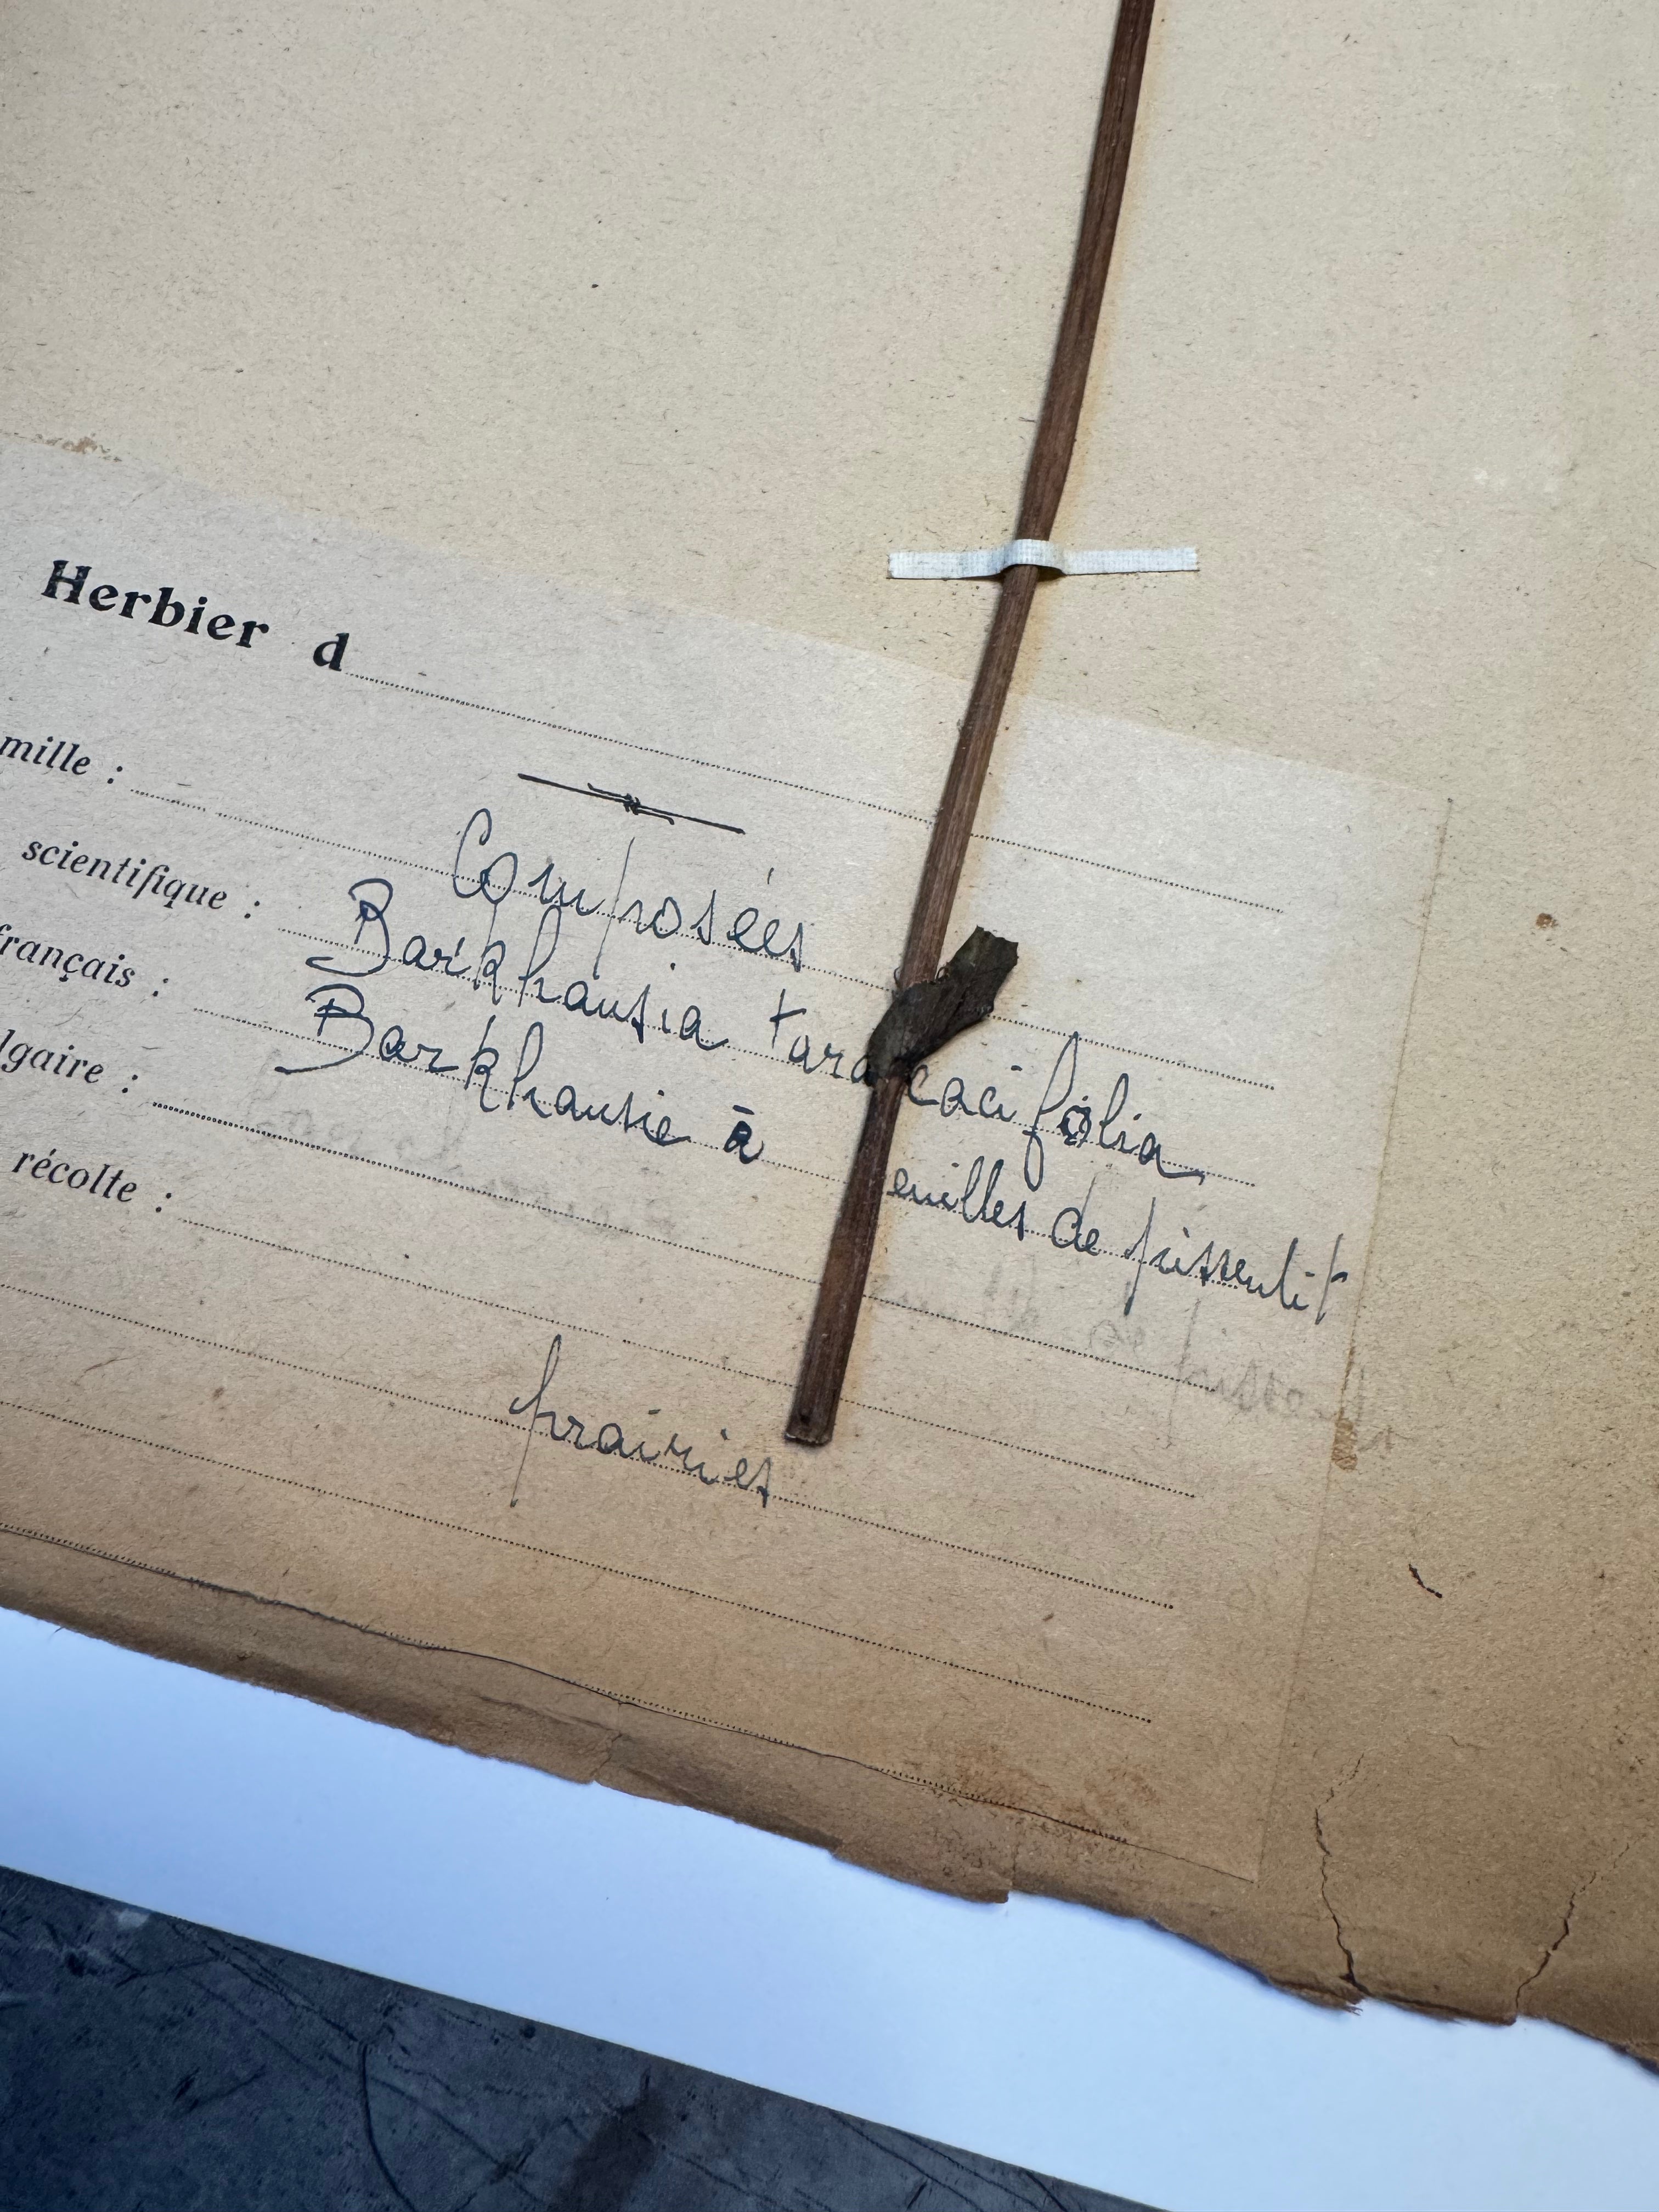 Herbier d
mille :
Composées
scientifique :
Barkhausia tara cacifolia
français :
Barkhausie à euilles de pissenlit
lgaire :
récolte :
prairies